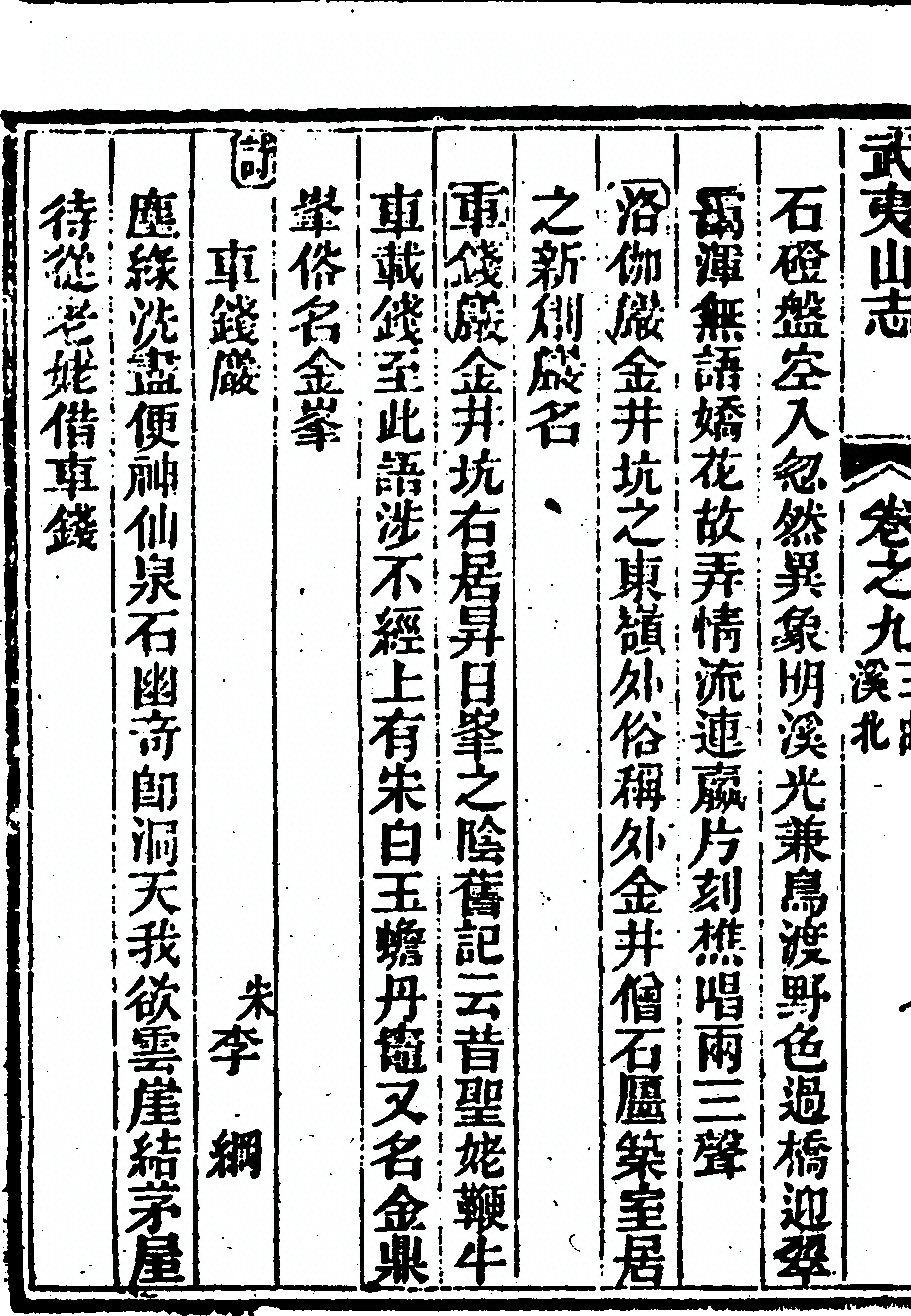 武夷山志
卷之九
溪北
石磴盤空入忽然異象明溪光兼鳥渡野色過橋迎翠
靄渾無語嬌花故弄情流連贏片刻樵唱兩三聲
洛伽巖金井坑之東嶺外俗稱外金井僧石隱築室居
之新創巖名
車錢巖金井坑右居昇日峯之陰舊記云昔聖姥鞭牛
車載錢至此語涉不經上有宋白玉蟾丹竈又名金鼎
峯俗名金峯
詩
車錢巖
宋李綱
塵緣洗盡便神仙泉石幽奇卽洞天我欲雲崖結茅屋
待從老姥借車錢